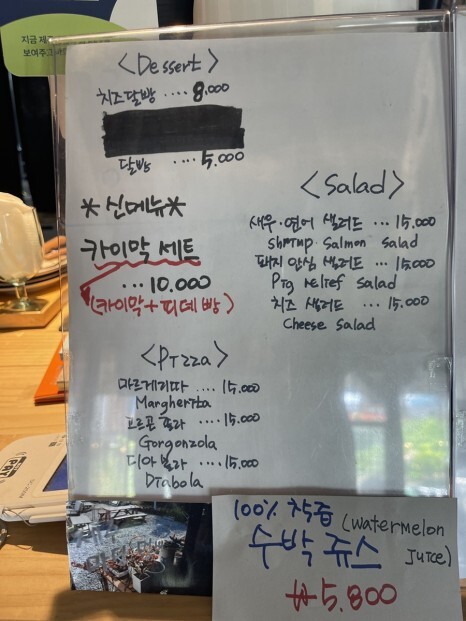 지금 제
보여주고
<Dessert>
치즈달빵 .... 8,000
달빵 .... 5,000
*신메뉴*
카이막 세트
... 10.000
(카이막+피데빵)
<Salad>
새우·연어 샐러드 ... 15.000
shrimp salmon salad
돼지 안심 샐러드 ... 15.000
Pig relief salad
치즈 샐러드 ... 15.000
Cheese Salad
<Pizza>
마르게리따 .... 15.000
Margherita
고르곤졸라 .... 15.000
Gorgonzola
디아볼라 .... 15.000
Diabola
100% 착즙
수박 쥬스 (watermelon juice)
₩5.800